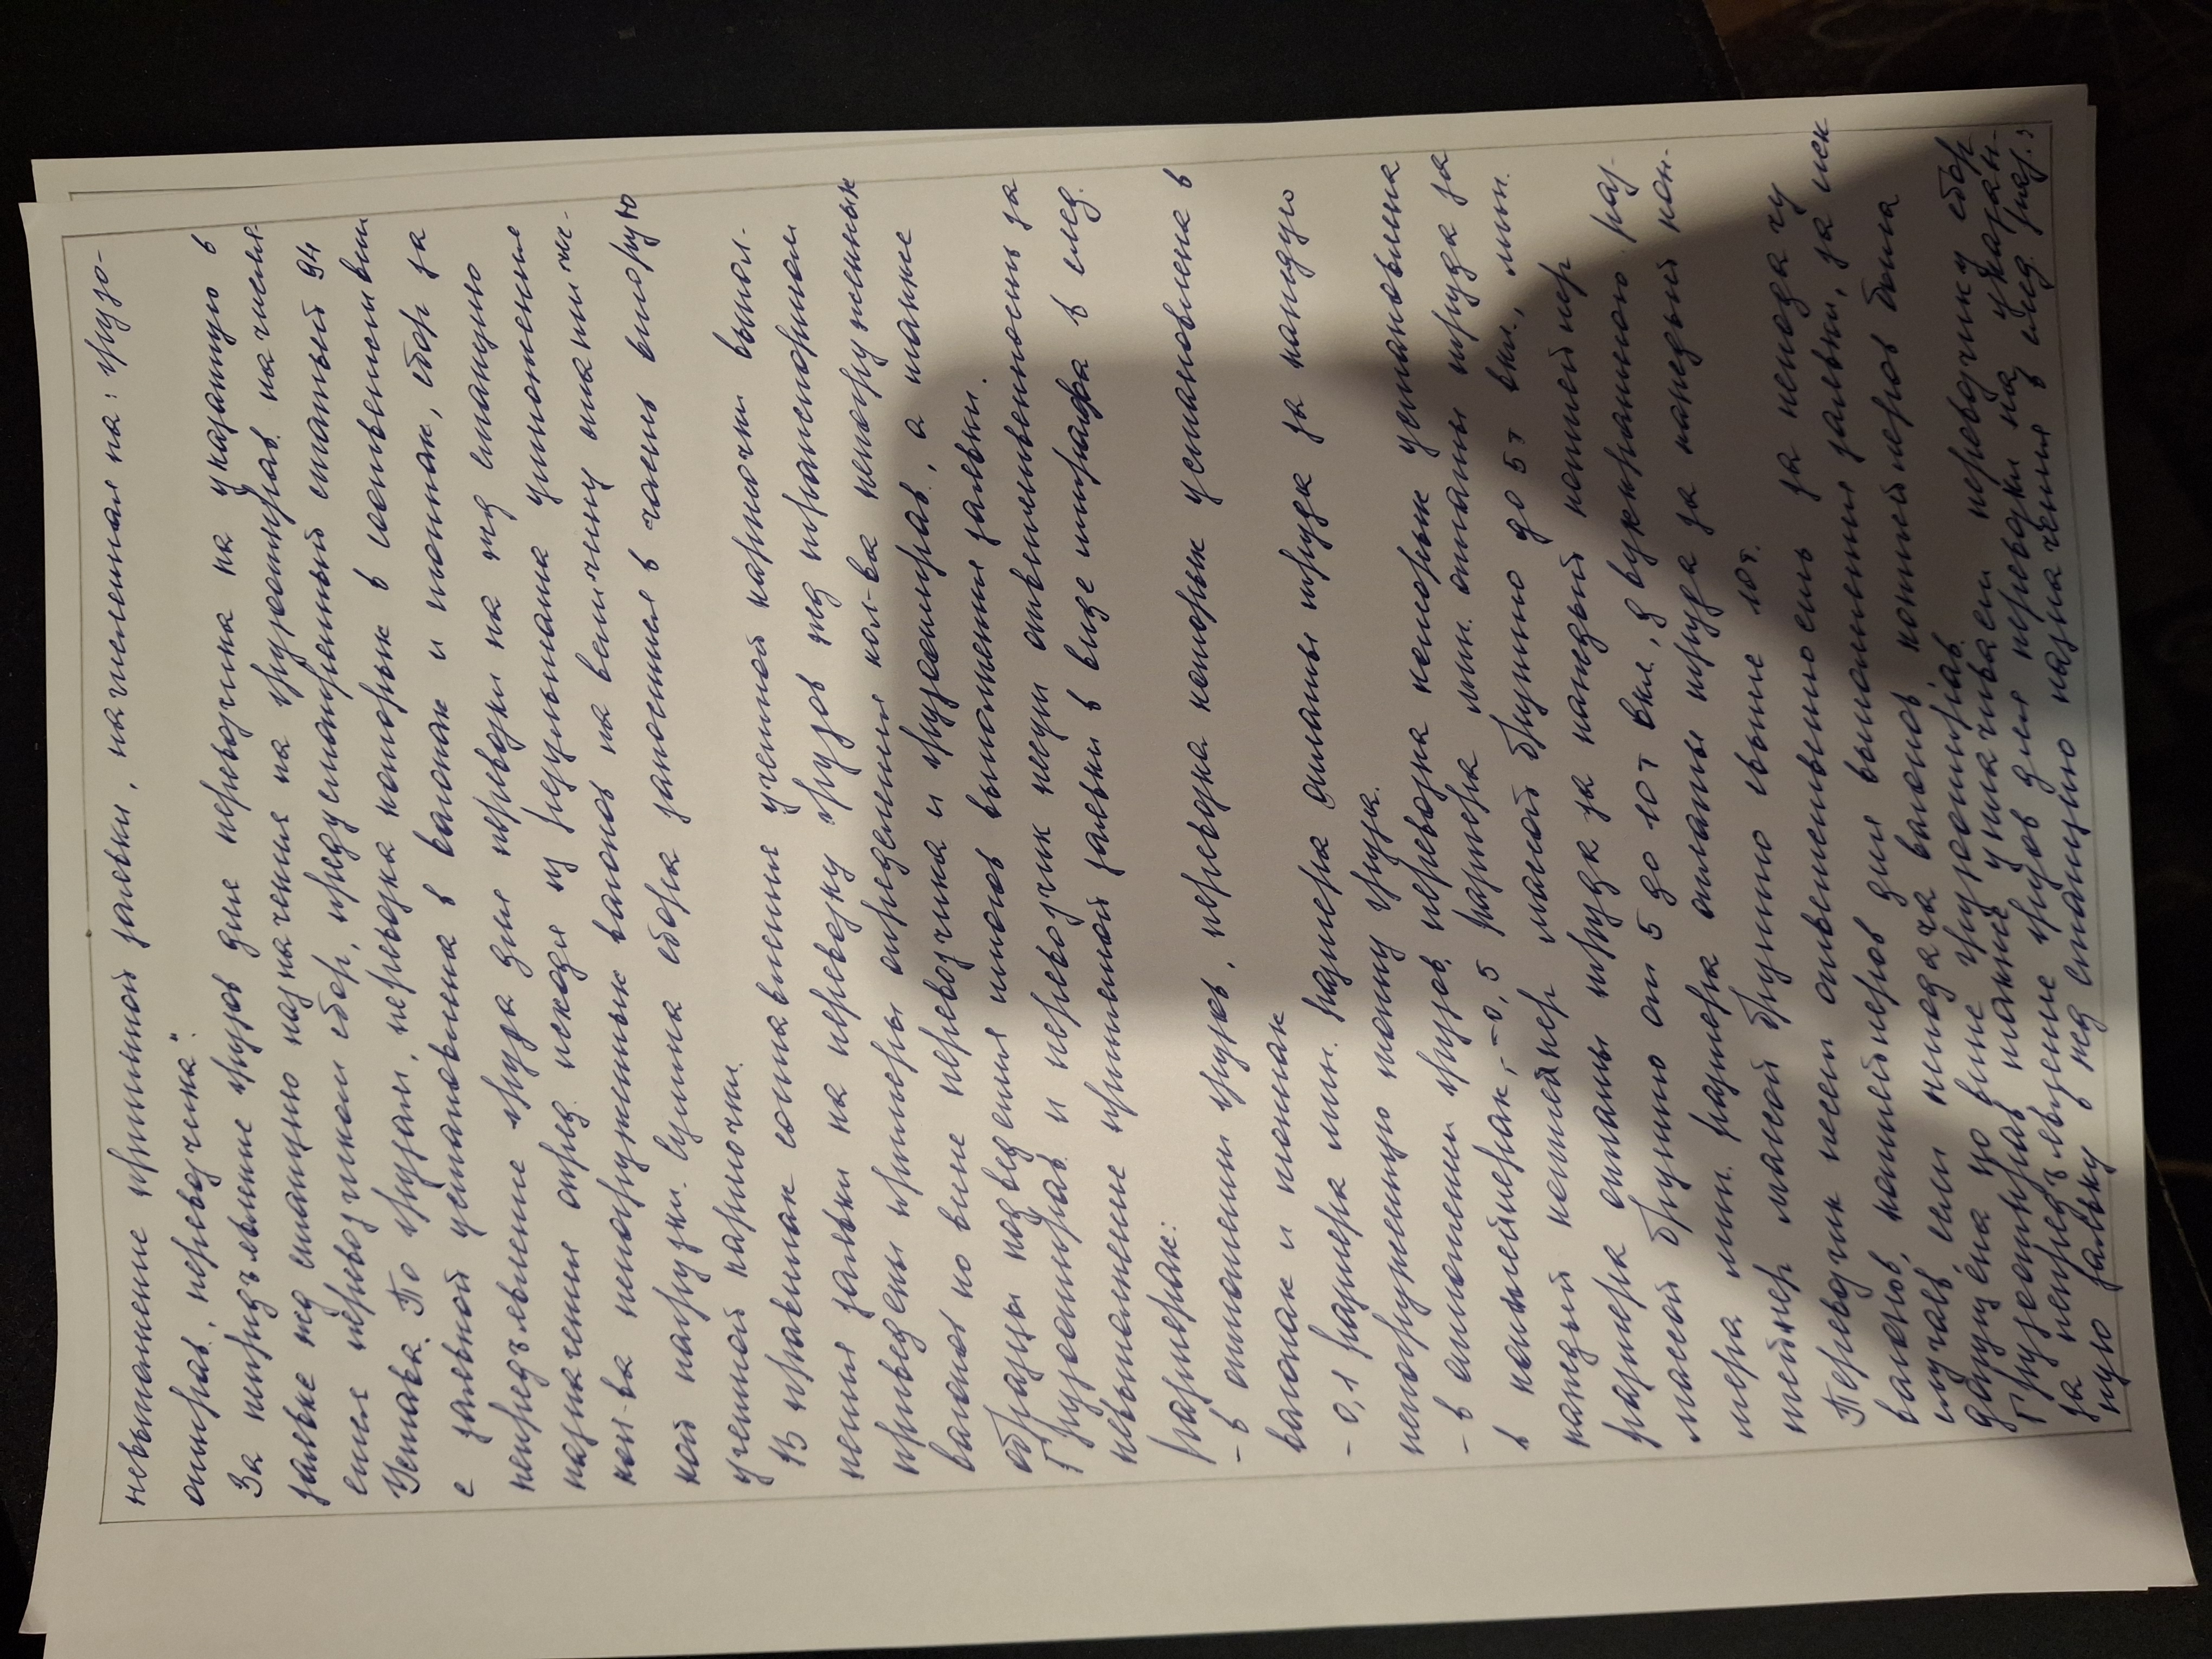 невыполнение принятой заявки, начисленная на: грузо-
отправ., перевозчика".
За непредъявление грузов для перевозчика на указанную в
заявке жд станцию назначения на грузоотправ. начисля-
ется перевозчиком сбор, предусмотренный статьей 94
Устава. По грузам, перевозка которых в соответствии
с заявкой установлена в вагонах и тоннах, сбор за
непредъявление груза для перевозки на жд станцию
назначения опред. исходя из результата умножения
кол-ва непогруженных вагонов на величину статиче-
кой нагрузки. Сумма сбора заносится в часть вторую
учетной карточки.
В правилах составления учетной карточки выпол-
нения заявки на перевозку грузов жд транспортом
приведены примеры определения кол-ва непогруженных
вагонов по вине перевозчика и грузоотправ., а также
образцы подведения итогов выполнения заявки.
Грузоотправ. и перевозчик несут ответственность за
невыполнение принятой заявки в виде штрафа в след.
размерах:
- в отношении грузов, перевозка которых установлена в
вагонах и тоннах
- 0,1 размера мин. размера оплаты труда за каждую
непогруженную тонну груза.
- в отношении грузов, перевозка которых установлена
в контейнерах, - 0,5 размера мин. оплаты труда за
каждый контейнер массой брутто до 5т вкл., мин.
размера оплаты труда за каждый контейнер
массой брутто от 5 до 10т вкл, двукратного раз-
мера мин. размера оплаты труда за каждый кон-
тейнер массой брутто свыше 10т.
Перевозчик несет ответственность за неподачу
вагонов, контейнеров для выполнения заявки, за иск
случаев, если подача вагонов, контейнеров была
допущена по вине грузоотправ.
Грузоотправ. также уплачивает перевозчику сбор
за непредъявление грузов для перевозки на указан-
ную заявку жд станцию назначения в след. раз.: